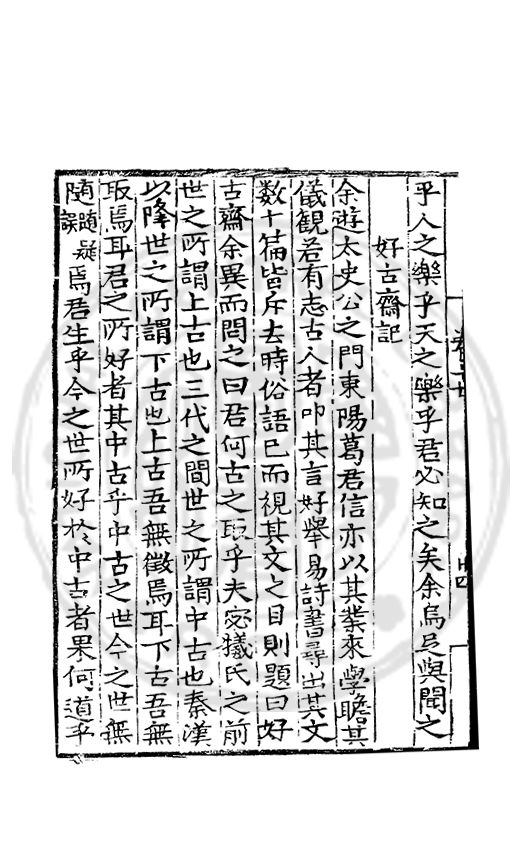 乎人之樂乎天之樂乎君必知之矣余烏足與聞之
好古齋記
余遊太史公之門東陽葛君信亦以其業來學瞻其
儀觀若有志古人者叩其言好舉易詩書尋出其文
数十篇皆斥去時俗語已而視其文之目則題曰好
古齋余異而問之曰君何古之取乎夫宓犧氏之前
世之所謂上古也三代之間世之所謂中古也秦漢
以降世之所謂下古也上古吾無徵焉耳下古吾無
取焉耳君之所好者其中古乎中古之世今之世無
隨隨疑誤焉君生乎今之世所好於中古者果何道乎